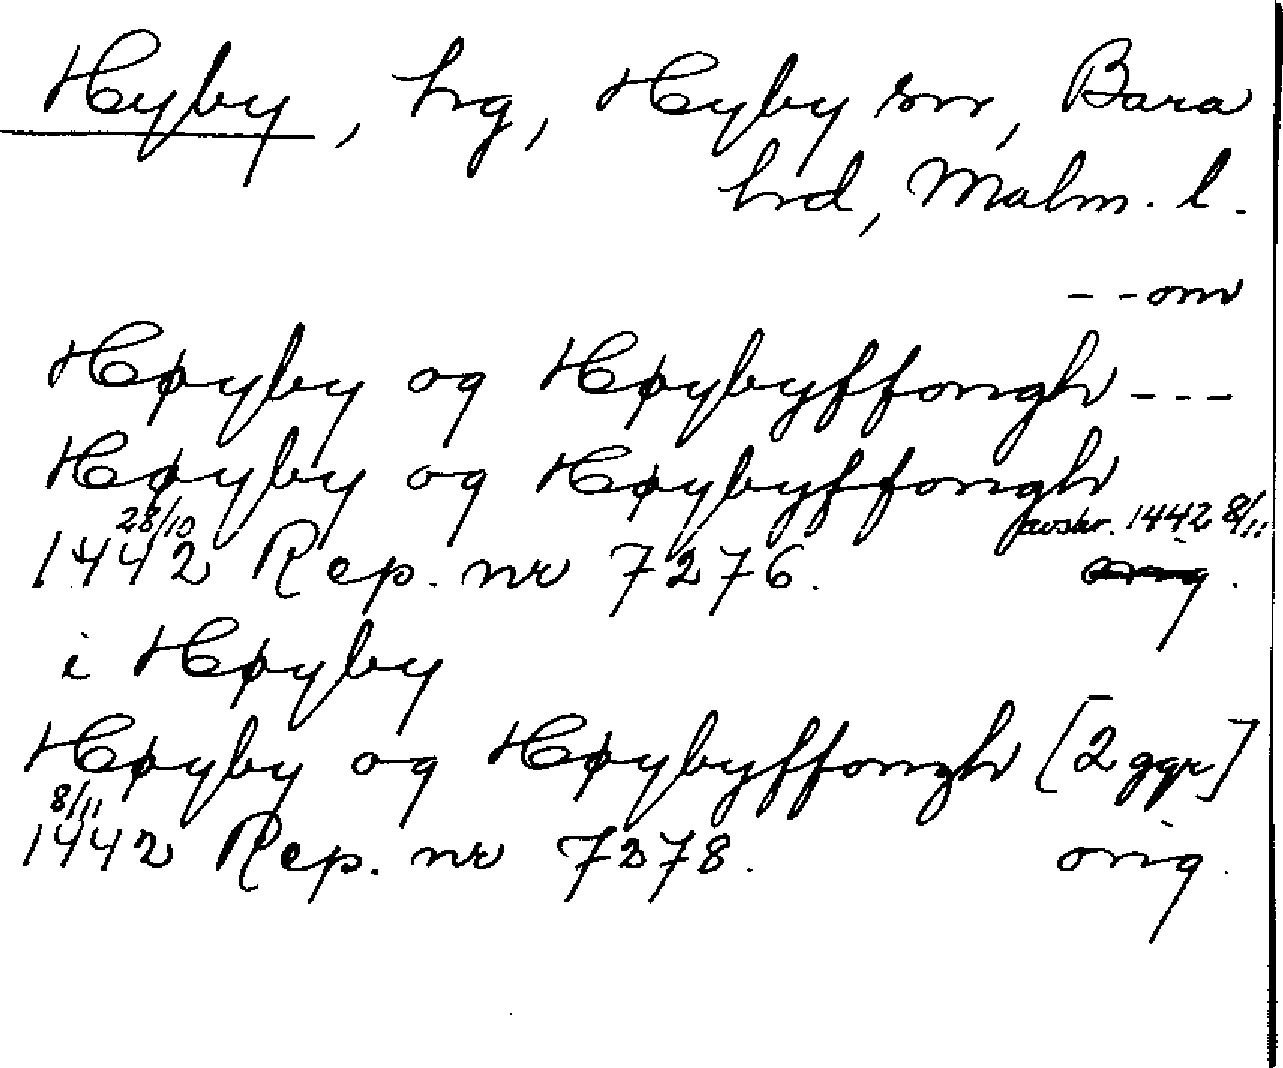 Hyby, hg, Hyby sn, Bara
hrd, Malm. l.
- - om
Høyby og Høybyffongh - - -
Høyby og Høybyffongh
28/10 avskr. 1442 8/11
1442 Rep. nr 7276. orig.
i Høyby
Høyby og Høybyffongh [2 ggr]
8/11
1442 Rep. nr 7278. orig.